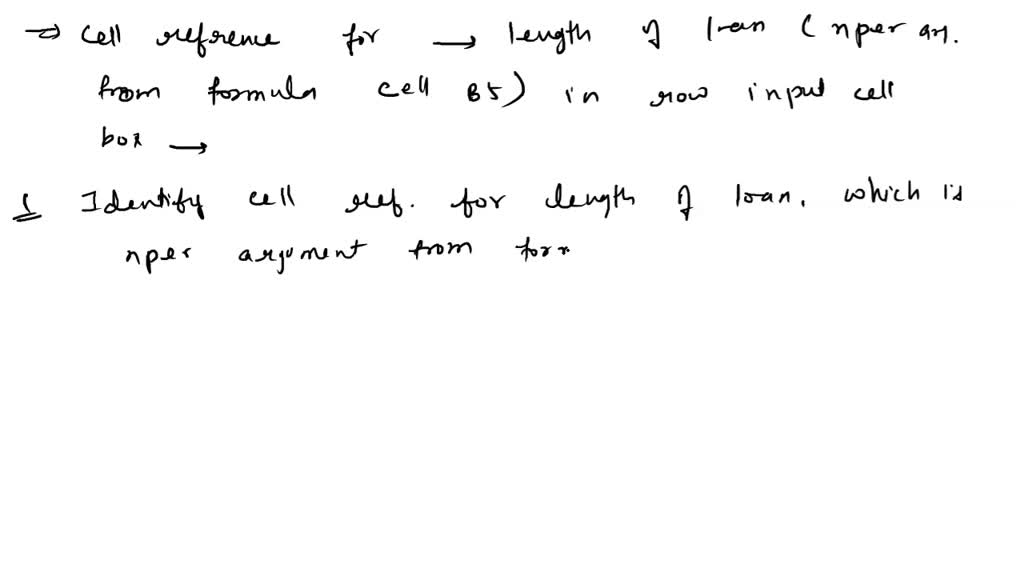 ⇒ Cell reference for → length of loan (nper arg.
from formula cell B5) in row input cell
box →
1 Identify cell ref. for length of loan, which is
nper argument from form